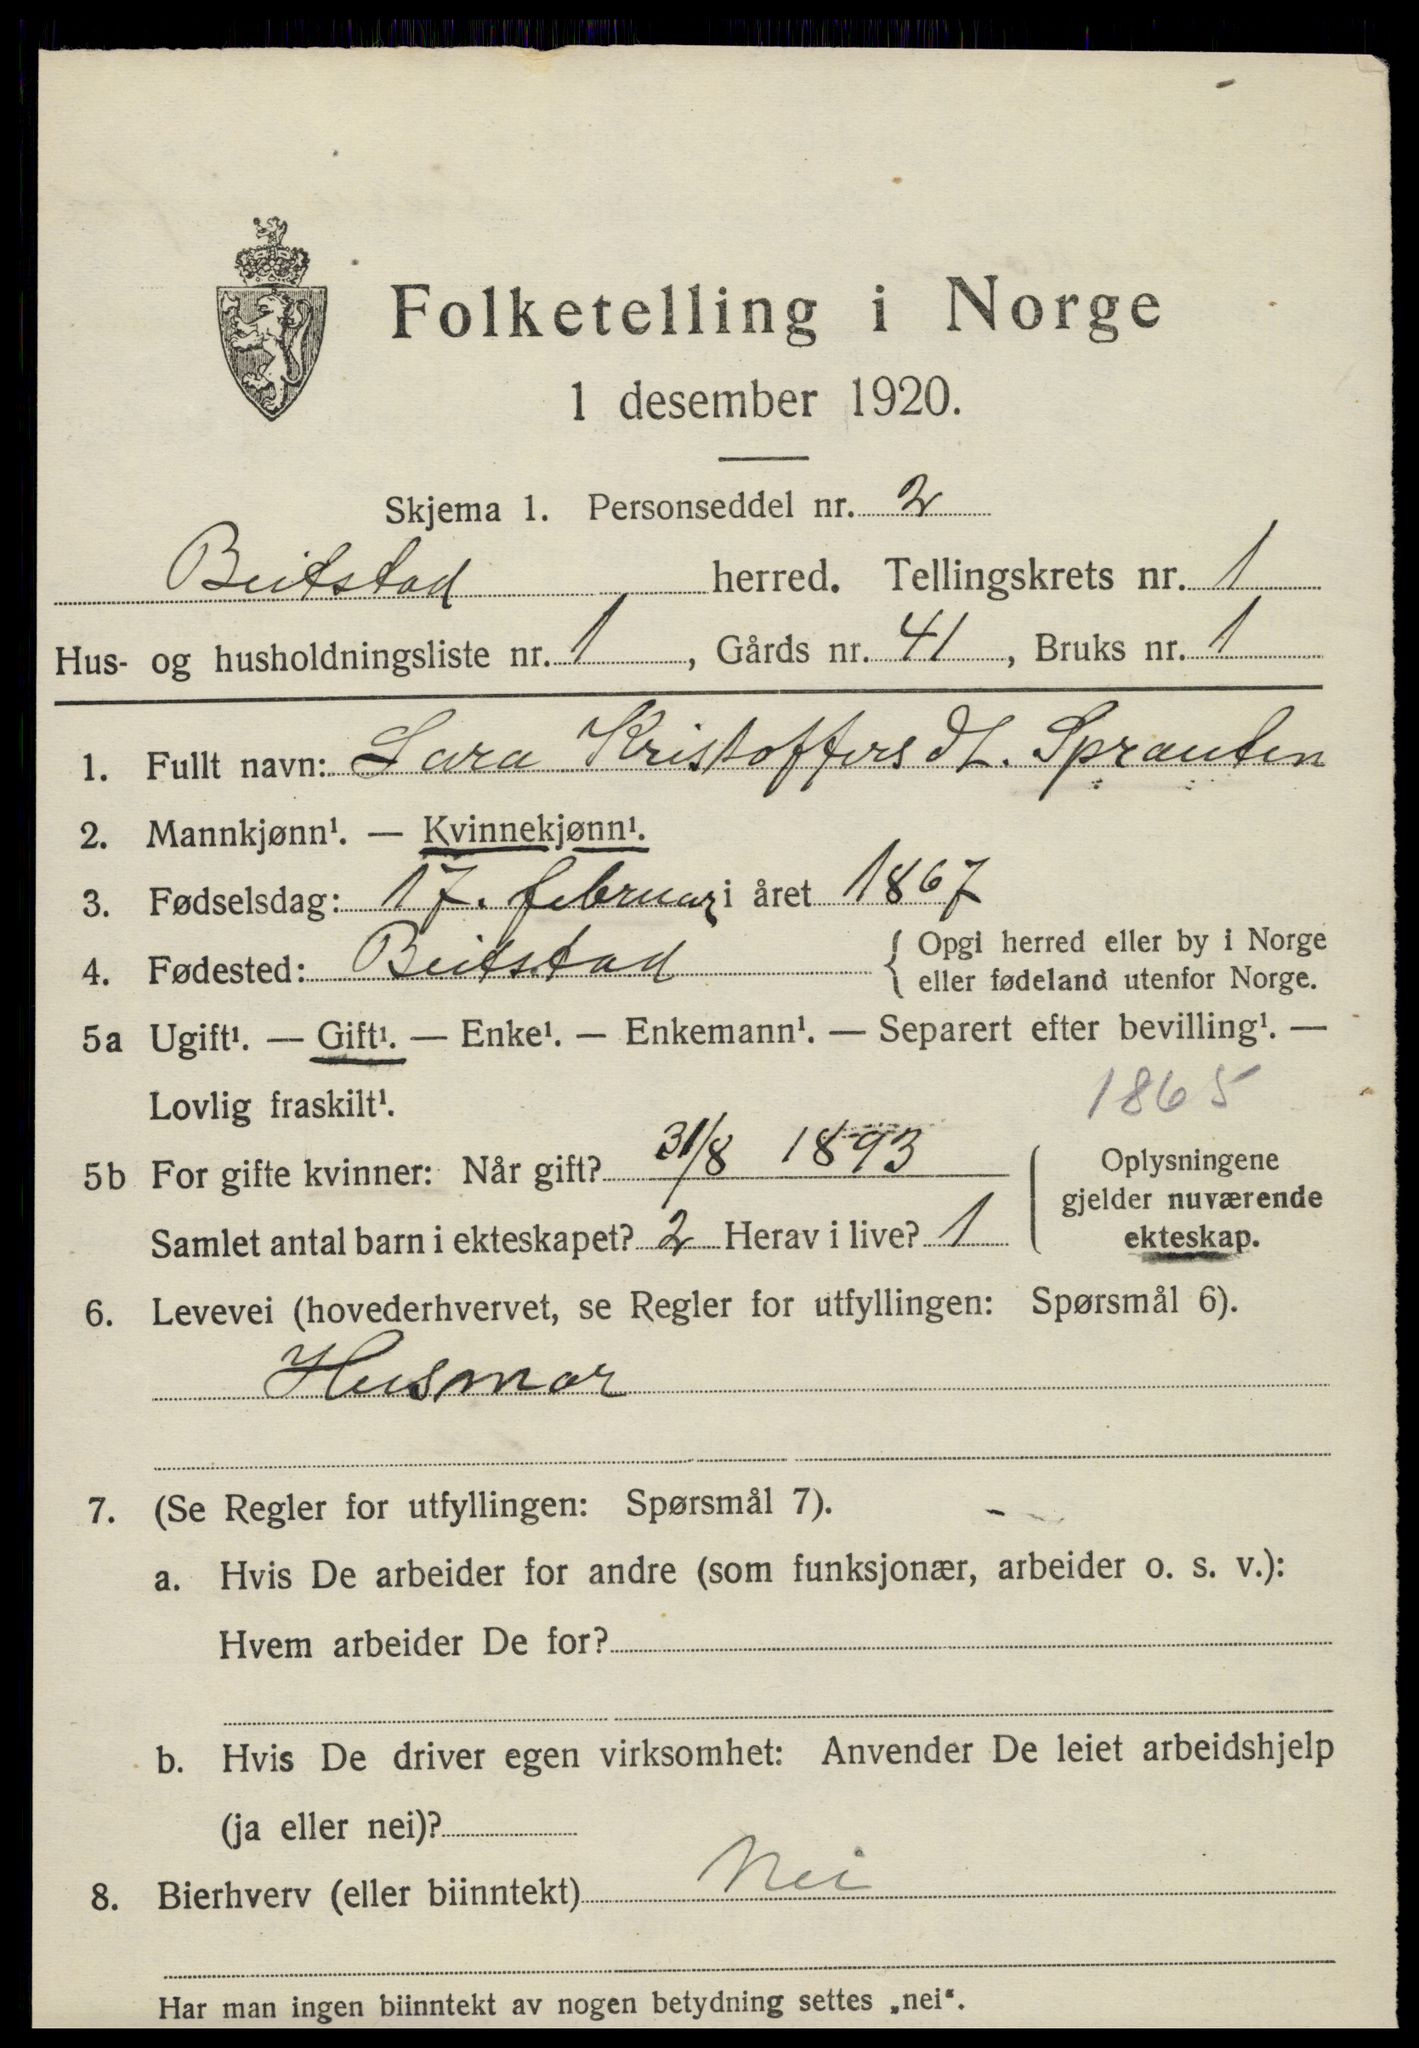 Folketelling i Norge
1 desember 1920.
Skjema 1. Personseddel nr. 2
Beitstad herred. Tellingskrets nr. 1
Hus- og husholdningsliste nr. 1, Gårds nr. 41, Bruks nr. 1
1. Fullt navn: Sara Kristoffersdt. Sprauten
2. Mannkjønn¹. — Kvinnekjønn¹.
3. Fødselsdag: 17. februar i året 1867
4. Fødested: Beitstad { Opgi herred eller by i Norge
eller fødeland utenfor Norge.
5a Ugift¹. — Gift¹. — Enke¹. — Enkemann¹. — Separert efter bevilling¹. —
Lovlig fraskilt¹.
1865
5b For gifte kvinner: Når gift? 31/8 1893
Samlet antal barn i ekteskapet? 2 Herav i live? 1
Oplysningene
gjelder nuværende
ekteskap.
6. Levevei (hovederhvervet, se Regler for utfyllingen: Spørsmål 6).
Husmor
7. (Se Regler for utfyllingen: Spørsmål 7).
a. Hvis De arbeider for andre (som funksjonær, arbeider o. s. v.):
Hvem arbeider De for?
b. Hvis De driver egen virksomhet: Anvender De leiet arbeidshjelp
(ja eller nei)?
8. Bierhverv (eller biinntekt) Nei
Har man ingen biinntekt av nogen betydning settes „nei“.